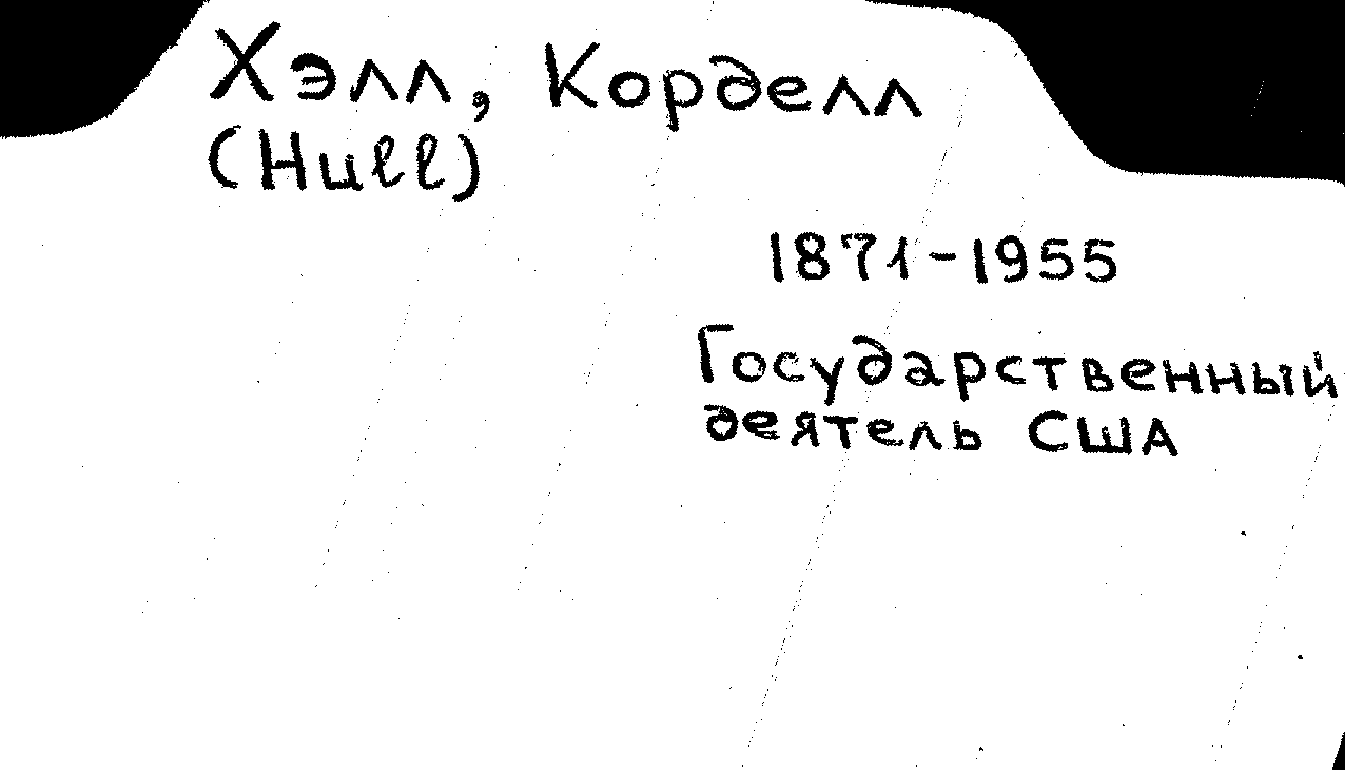 Хэлл, Корделл
(Hull)
1871-1955
Государственный
деятель США